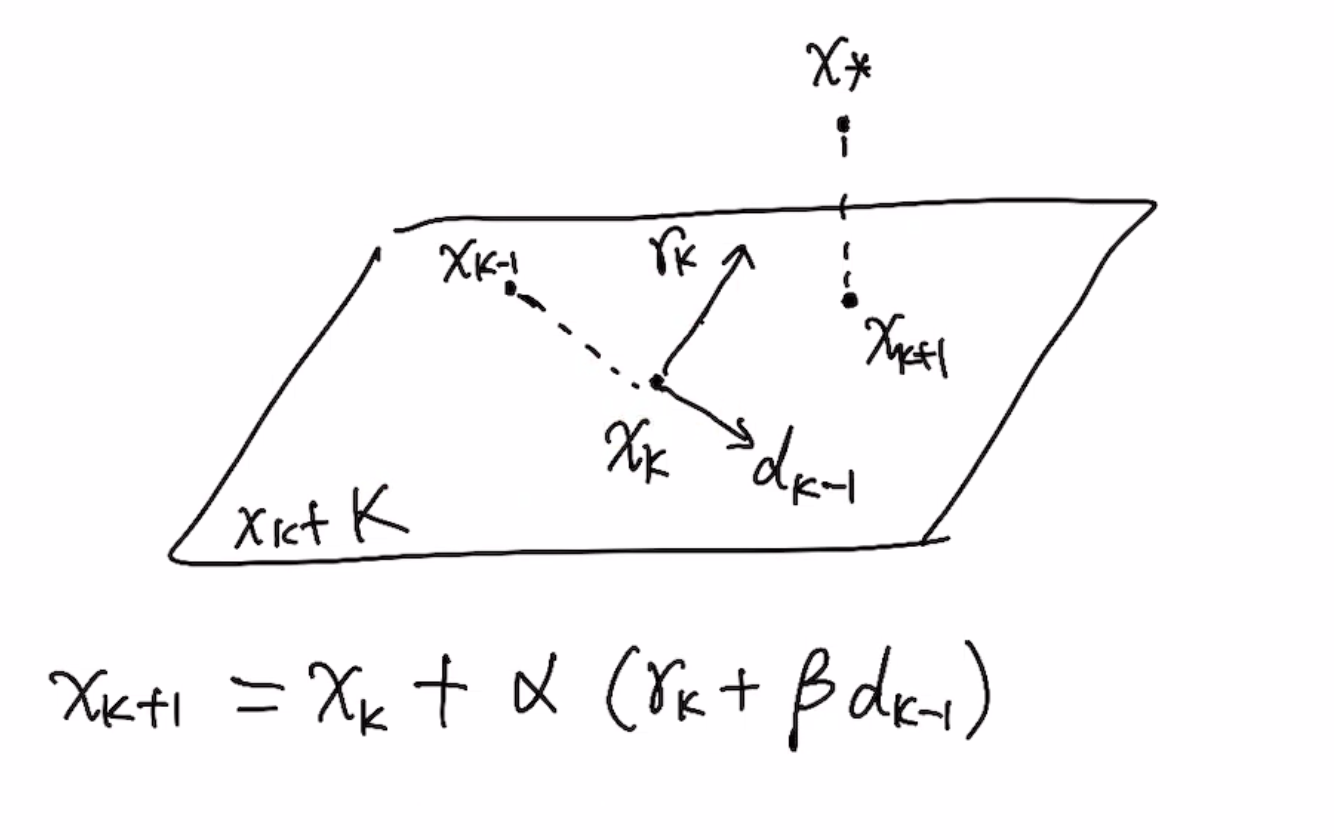 x*
x_{k-1}
r_k
x_{k+1}
x_k
d_{k-1}
x_k + K
x_{k+1} = x_k + α (r_k + β d_{k-1})